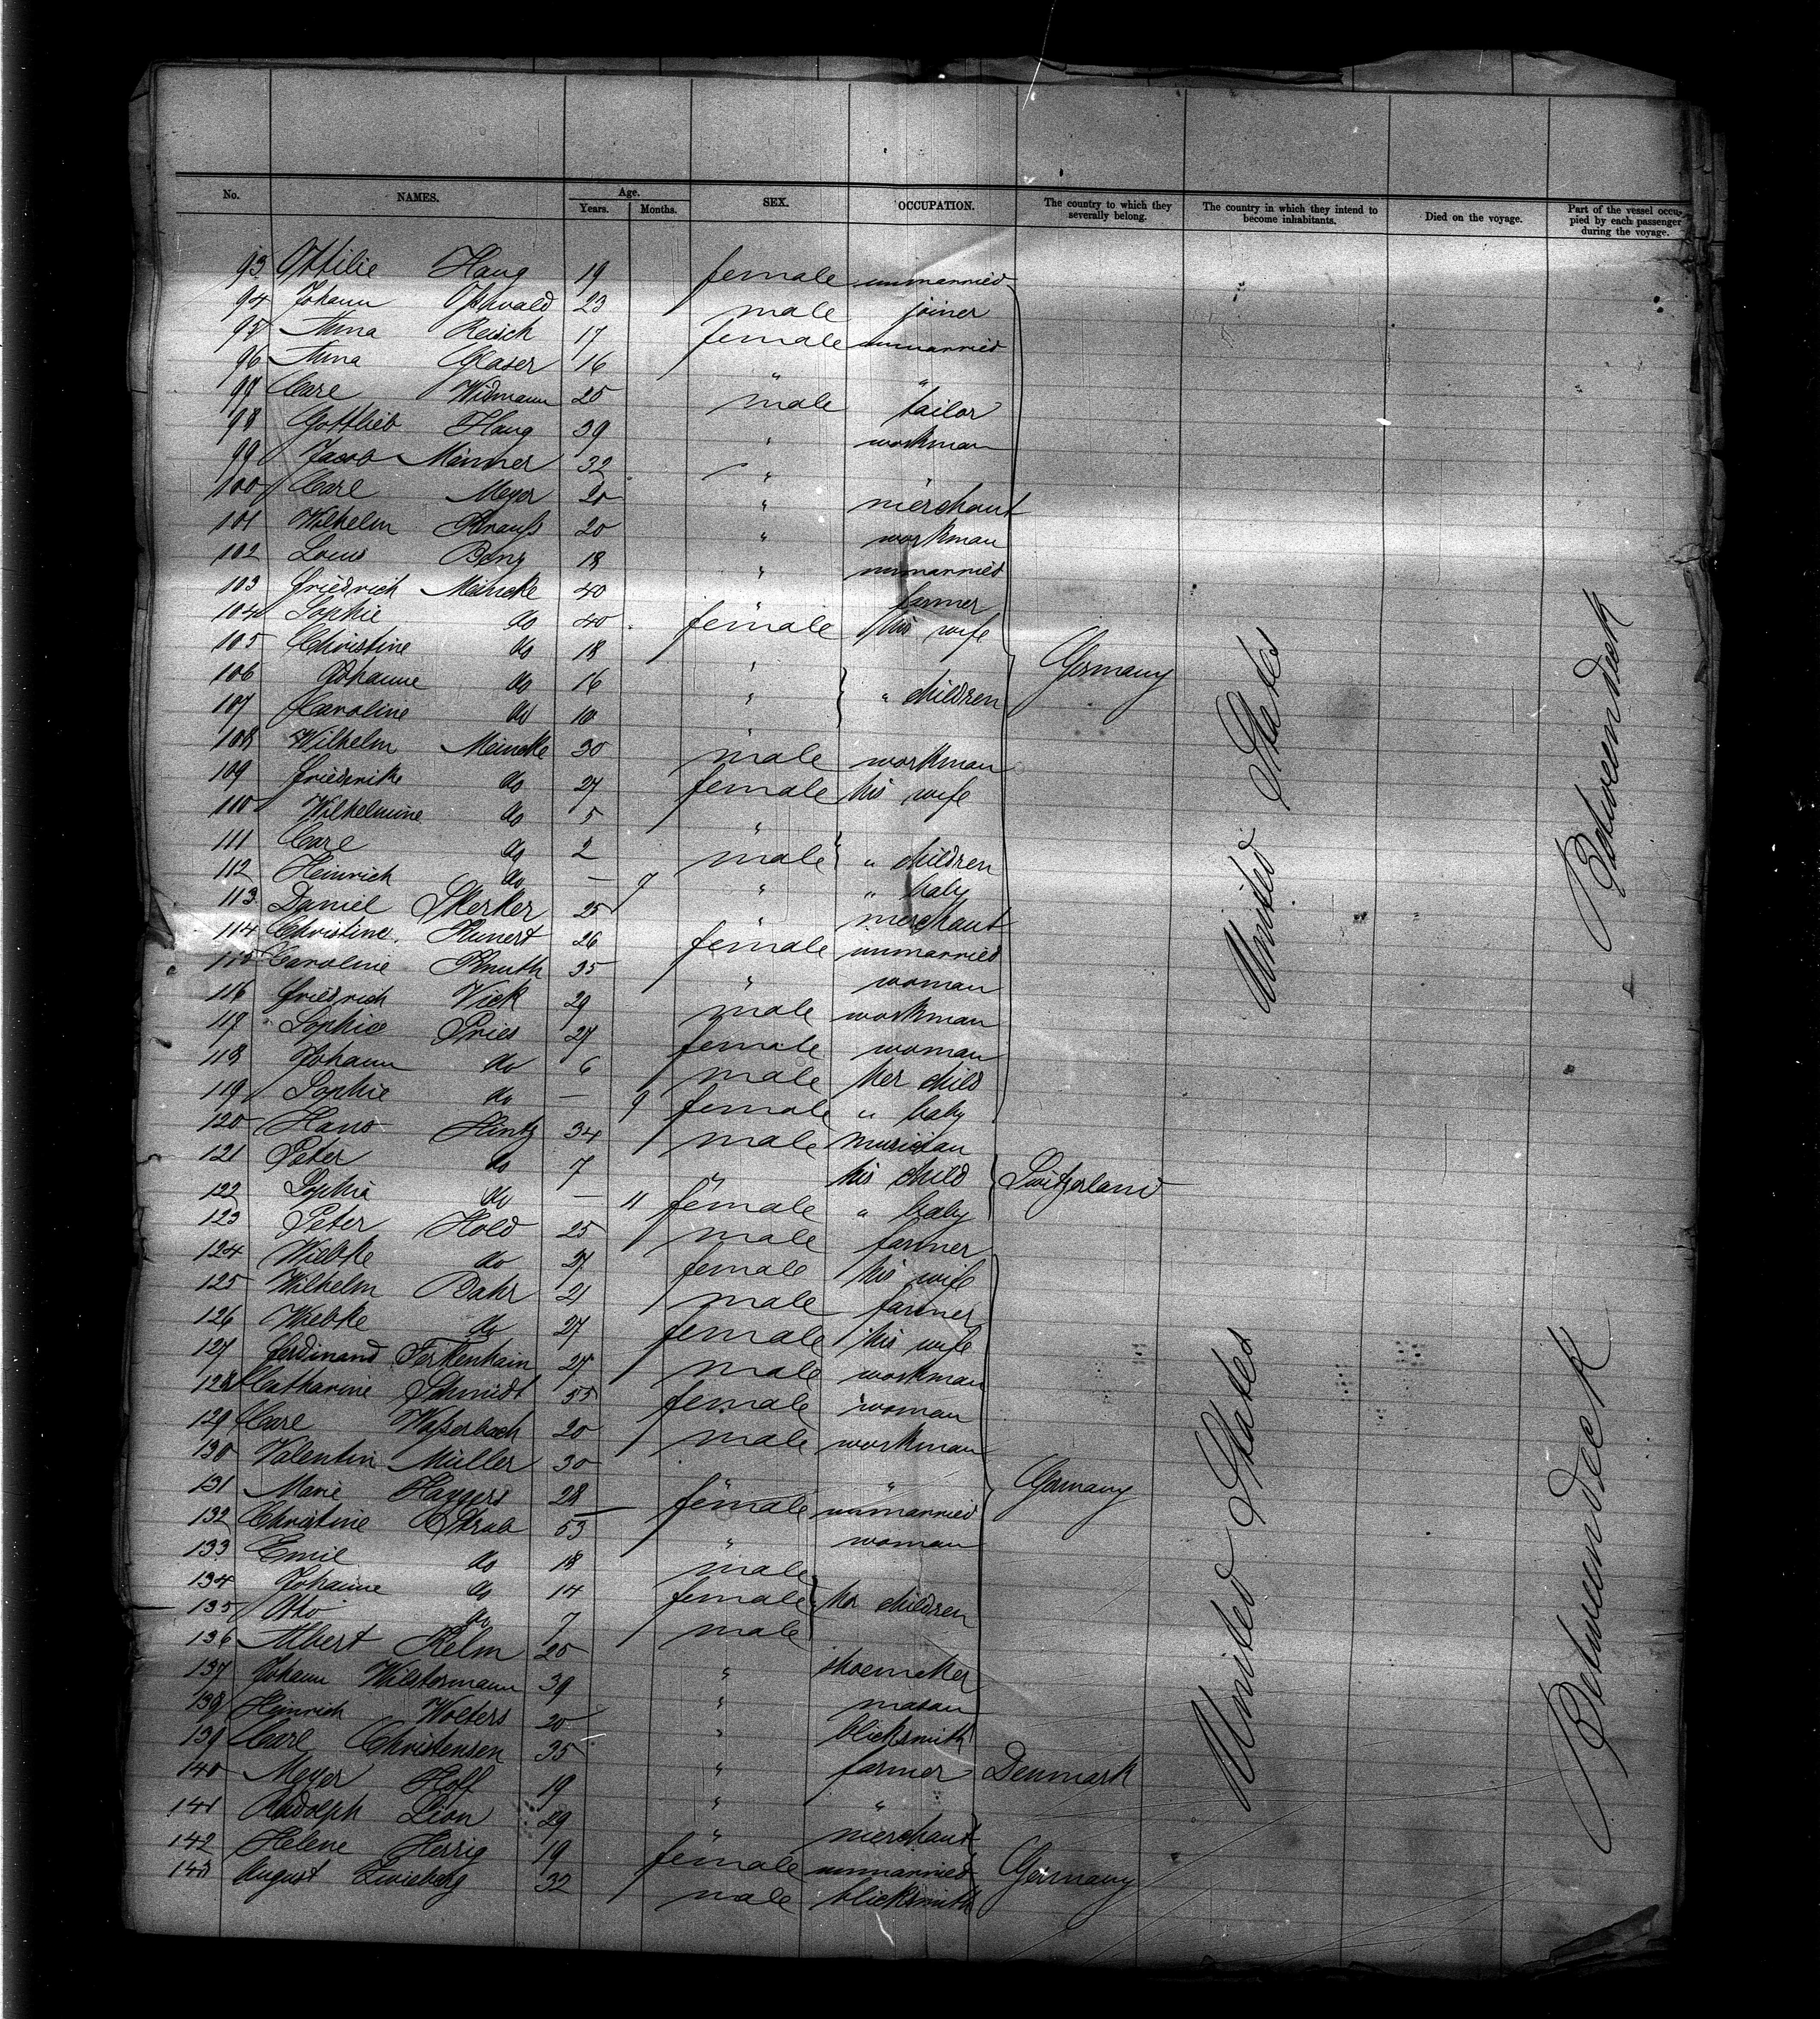 No. NAMES. Age. Years. Months. SEX. OCCUPATION. The country to which they severally belong. The country in which they intend to become inhabitants. Died on the voyage. Part of the vessel occupied by each passenger during the voyage.
93 Ottilie Haug 19 female unmarried
94 Johann Oswald 23 male joiner
95 Anna Reisch 17 female unmarried
96 Anna Glaser 16 " "
97 Carl Widmann 25 male tailor
98 Gottlieb Haug 39 " workman
99 Jacob 32 " "
100 Carl Meyer 20 " merchant
101 Wilhelm Krauss 20 " workman
102 Louis 18 " unmarried
103 Friedrich Meincke 40 " farmer
104 Sophie do 40 female his wife
105 Christine do 18 "
106 Johanne do 16 " " children Germany
107 Caroline do 10 "
108 Wilhelm Meincke 30 male workman
109 Friederike do 27 female his wife
110 Wilhelmine do 5 "
111 Carl do 2 male " children
112 Heinrich do — 7 " " baby
113 Daniel 25 " merchant
114 Christine Kunert 26 female unmarried
115 Caroline Knuth 35 " woman
116 Friedrich Vick 29 male workman
117 Sophie Pries 27 female woman
118 Johann do 6 male her child
119 Sophie do — 9 female " baby
120 Hans Hintz 34 male musician
121 Peter do 7 " his child Switzerland
122 Sophia do — 11 female " baby
123 Peter Hold 25 male farmer
124 Wiebke do 27 female his wife
125 Wilhelm Bahr 21 male farmer
126 Wiebke do 27 female his wife
127 Ferdinand Forkenhain 27 male workman
128 Catharine Schmidt 55 female woman
129 Carl 20 male workman
130 Valentin Müller 30 " "
131 Marie 28 female unmarried Germany
132 Christine 53 " woman
133 Emil do 18 male
134 Johanne do 14 female her children
135 Otto do 7 male
136 Albert Relm 25 " shoemaker
137 Johann 39 " mason
138 Heinrich Wolters 20 " blicksmith
139 Carl Christensen 35 " farmer Denmark
140 Meyer Hoff 19 " "
141 Rudolph Lion 29 " merchant
142 Helene Herrig 19 female unmarried Germany
143 August 32 male blicksmith
United States
Betweendeck
United States
Betweendeck